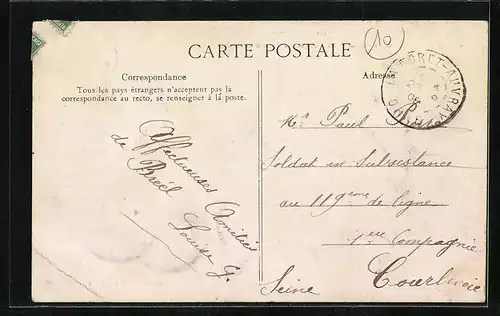 10
CARTE POSTALE
Correspondance
Tous les pays étrangers n'acceptent pas la
correspondance au recto, se renseigner à la poste.
Affectueuses Amitiés
de Bréël
Louise G.
Adresse
LA FORÊT-AUVRAY
Mr Paul
Soldat en Subsistance
au 119ème de ligne
1ere Compagnie
Courbevoie
Seine